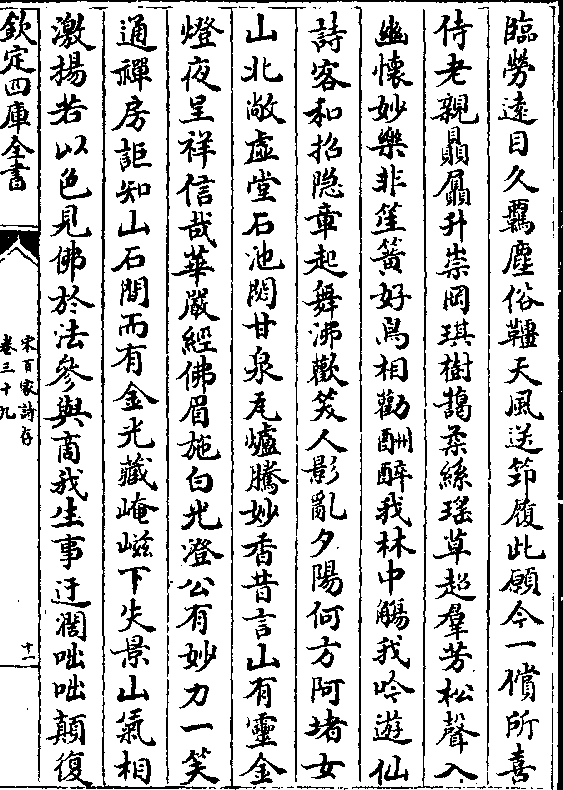 臨勞遠目久羈塵俗韁天風送筇履此願今一償所喜
侍老親贔屭升崇岡琪樹藹柔絲瑶草超羣芳松聲入
幽懷妙樂非笙簧好鳥相勸酬醉我林中觴我吟遊仙
詩客和招隠章起舞沸歡笑人影亂夕陽何方阿堵女
山北敞虛堂石池閟甘泉瓦爐騰妙香昔言山有靈金
燈夜呈祥信哉華嚴經佛眉施白光澄公有妙力一笑
通禪房詎知山石間而有金光藏崦嵫下失景山氣相
激揚若以色見佛於法參與商我生事迂濶咄咄顛復
欽定四庫全書
宋百家詩存
卷三十九
十一